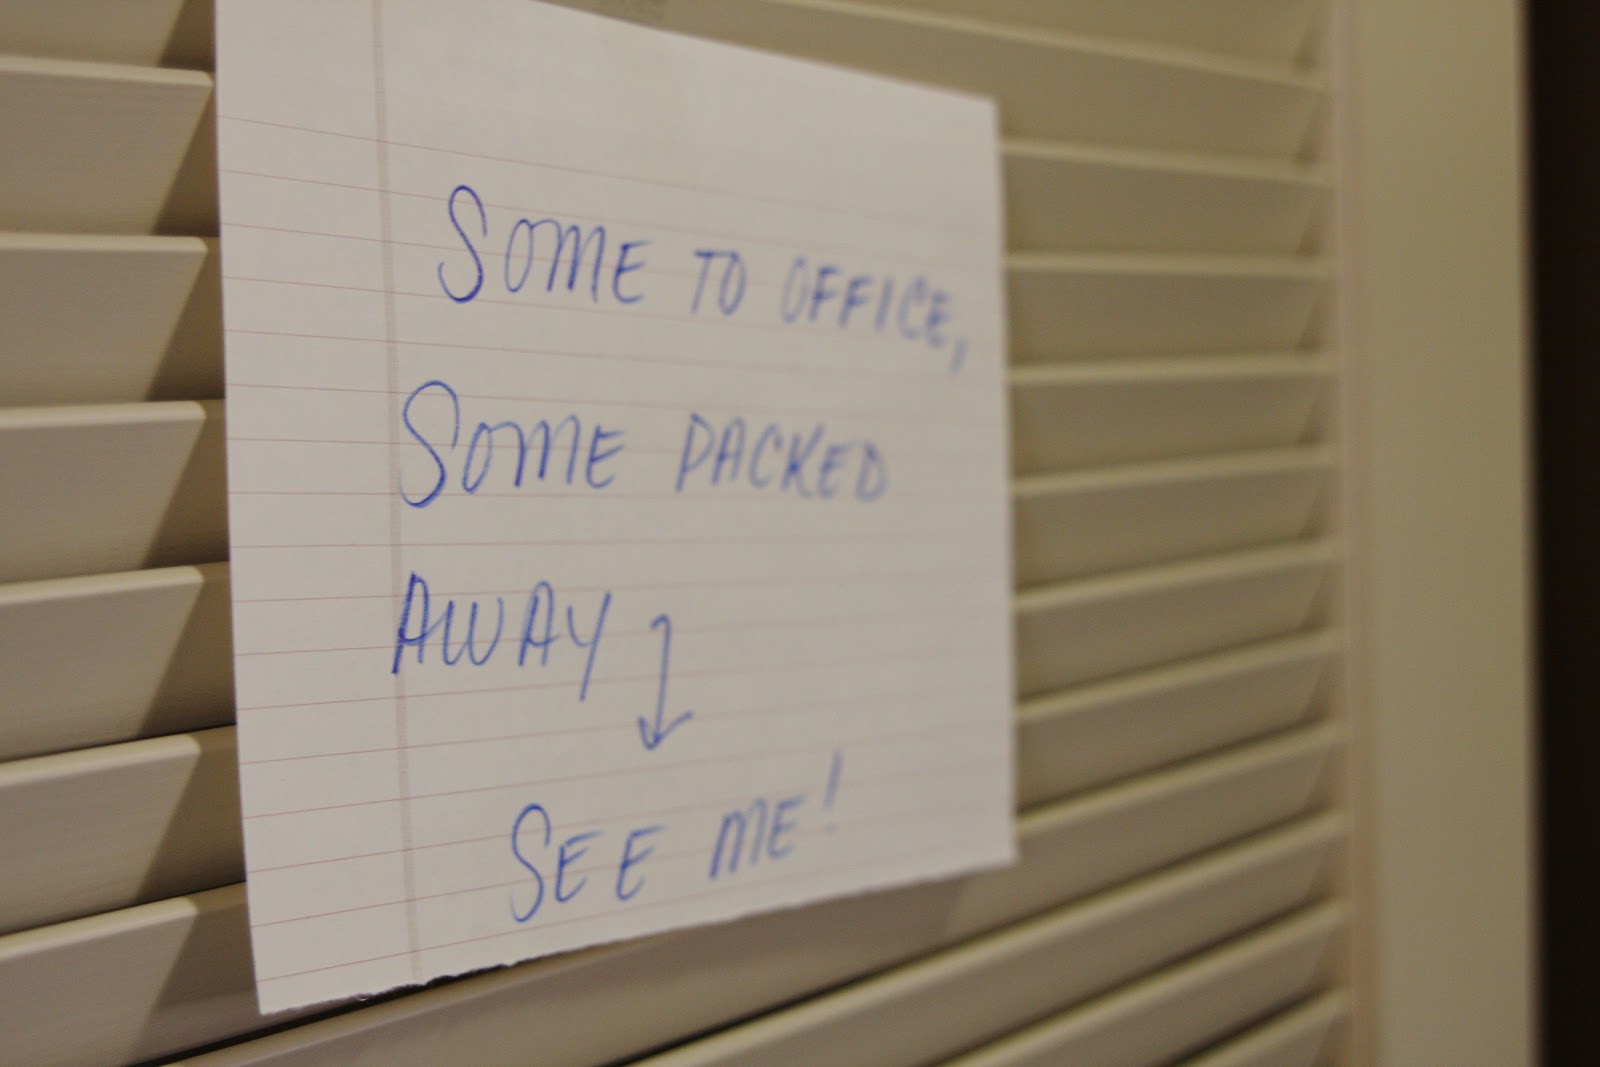 SOME TO OFFICE,
SOME PACKED
AWAY
SEE ME!